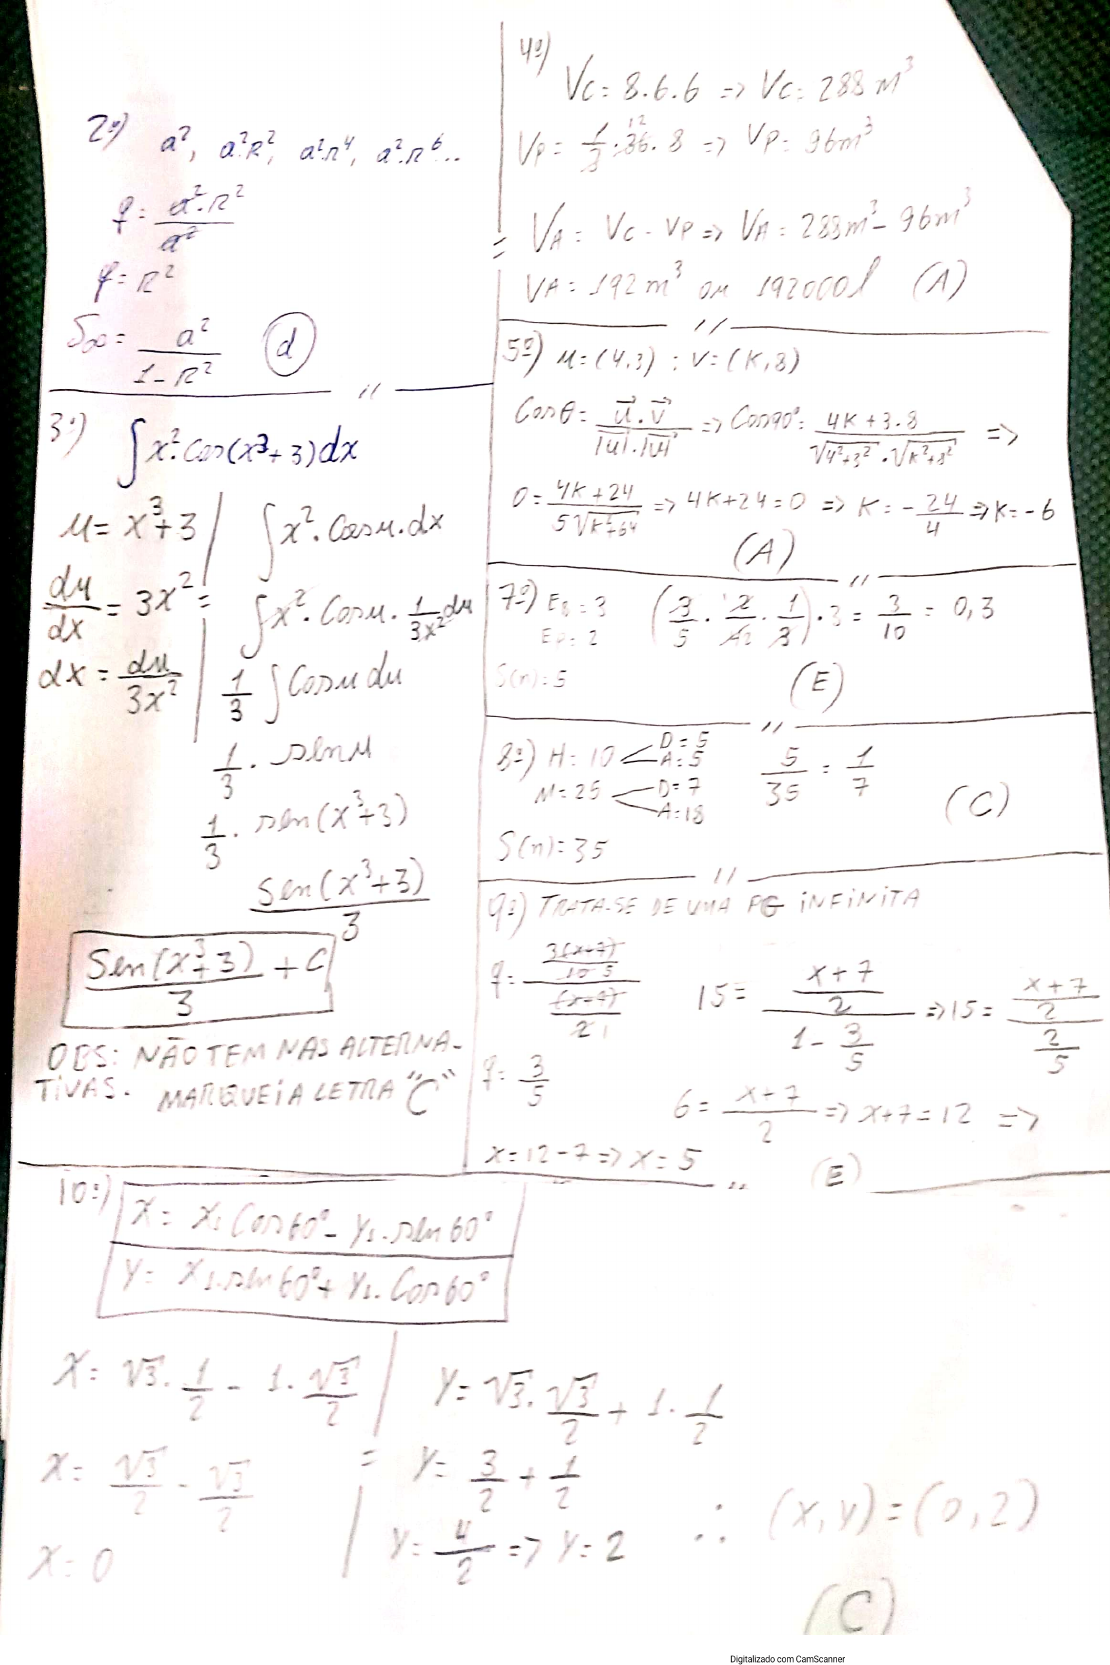 2º)
a², a².R², a².R⁴, a².R⁶...
q = a².R² / a²
q = R²
S∞ = a² / 1-R² (d)
3º)
∫x².Cos(x³+3)dx
u = x³+3
du/dx = 3x² =
dx = du/3x²
∫x².Cosu.dx
∫x².Cosu.1/3x² du
1/3 ∫Cosu du
1/3 . senu
1/3 . sen(x³+3)
Sen(x³+3) / 3
Sen(x³+3) / 3 + C
OBS: NÃO TEM NAS ALTERNA-
TIVAS. MARQUEI A LETRA "C"
4º)
Vc = 8.6.6 => Vc = 288m³
Vp = 1/3 . 36 . 8 => Vp = 96m³
12
= VA = Vc - Vp => VA = 288m³ - 96m³
VA = 192m³ ou 192000l (A)
5º) u = (4,3) ; v = (K,8)
Cosθ = u⃗.v⃗ / |u⃗|.|u⃗| => Cos90º = 4K+3.8 / √4²+3² . √K²+8² =>
0 = 4K+24 / 5√K²+64 => 4K+24=0 => K = -24/4 => K = -6
(A)
7º) EB = 3
EP = 2
S(n) = 5
(3/5 . 2/4 2 . 1/3) . 3 = 3/10 = 0,3
(E)
8º) H = 10 D = 5
A = 5
M = 25 D = 7
A = 18
S(n) = 35
5/35 = 1/7
(C)
9º) TRATA-SE DE UMA PG INFINITA
q = 3(x+7)/10 5 / (x+7)/2 1
q = 3/5
15 = x+7/2 / 1 - 3/5 => 15 = x+7/2 / 2/5
6 = x+7 / 2 => x+7 = 12 =>
x = 12-7 => x = 5
(E)
10º)
X = X₁Cos60º - Y₁.sen60º
Y = X₁.sen60º + Y₁.Cos60º
X = √3 . 1/2 - 1 . √3/2
X = √3/2 - √3/2
X = 0
Y = √3 . √3/2 + 1 . 1/2
= Y = 3/2 + 1/2
Y = 4/2 => Y = 2
∴ (X,Y) = (0,2)
(C)
Digitalizado com CamScanner